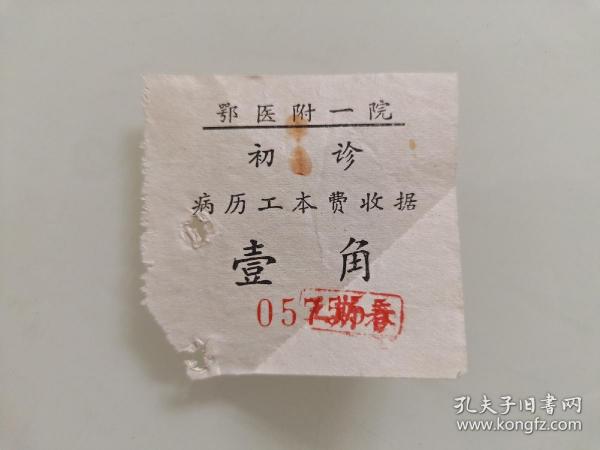 鄂医附一院
初诊
病历工本费收据
壹角
057
孔夫子旧书网
www.kongfz.com